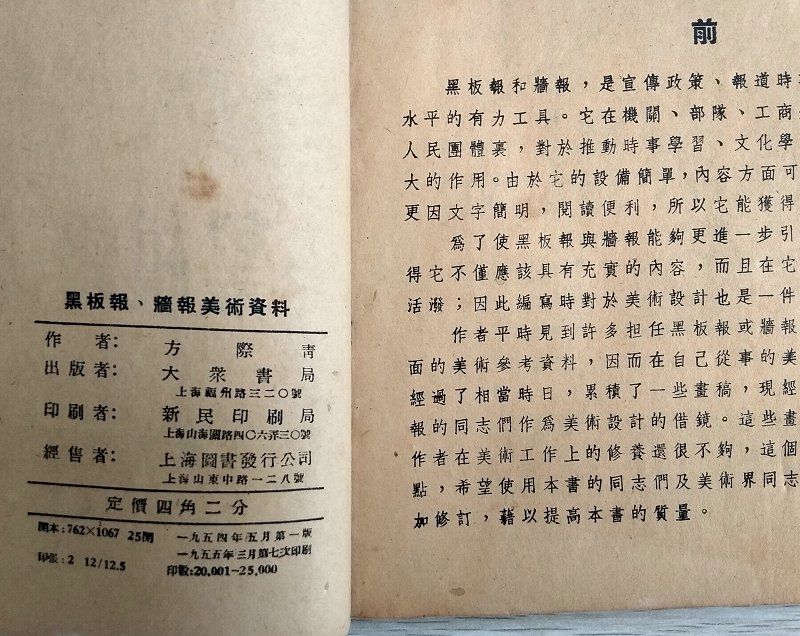 黑板報、牆報美術資料
作者：方際青
出版者：大衆書局
上海福州路三二〇號
印刷者：新民印刷局
上海山海關路四〇六弄三〇號
經售者：上海圖書發行公司
上海山東中路一二八號
定價四角二分
開本：762×1067 25開 一九五四年五月第一版
一九五五年三月第七次印刷
印張：2 12/12.5 印數：20,001—25,000
前
黑板報和牆報，是宣傳政策、報道時
水平的有力工具。它在機關、部隊、工商
人民團體裏，對於推動時事學習、文化學
大的作用。由於它的設備簡單，內容方面可
更因文字簡明，閱讀便利，所以它能獲得
爲了使黑板報與牆報能夠更進一步引
得它不僅應該具有充實的內容，而且在它
活潑；因此編寫時對於美術設計也是一件
作者平時見到許多担任黑板報或牆報
面的美術參考資料，因而在自己從事的美
經過了相當時日，累積了一些畫稿，現經
報的同志們作爲美術設計的借鏡。這些畫
作者在美術工作上的修養還很不夠，這個
點，希望使用本書的同志們及美術界同志
加修訂，藉以提高本書的質量。